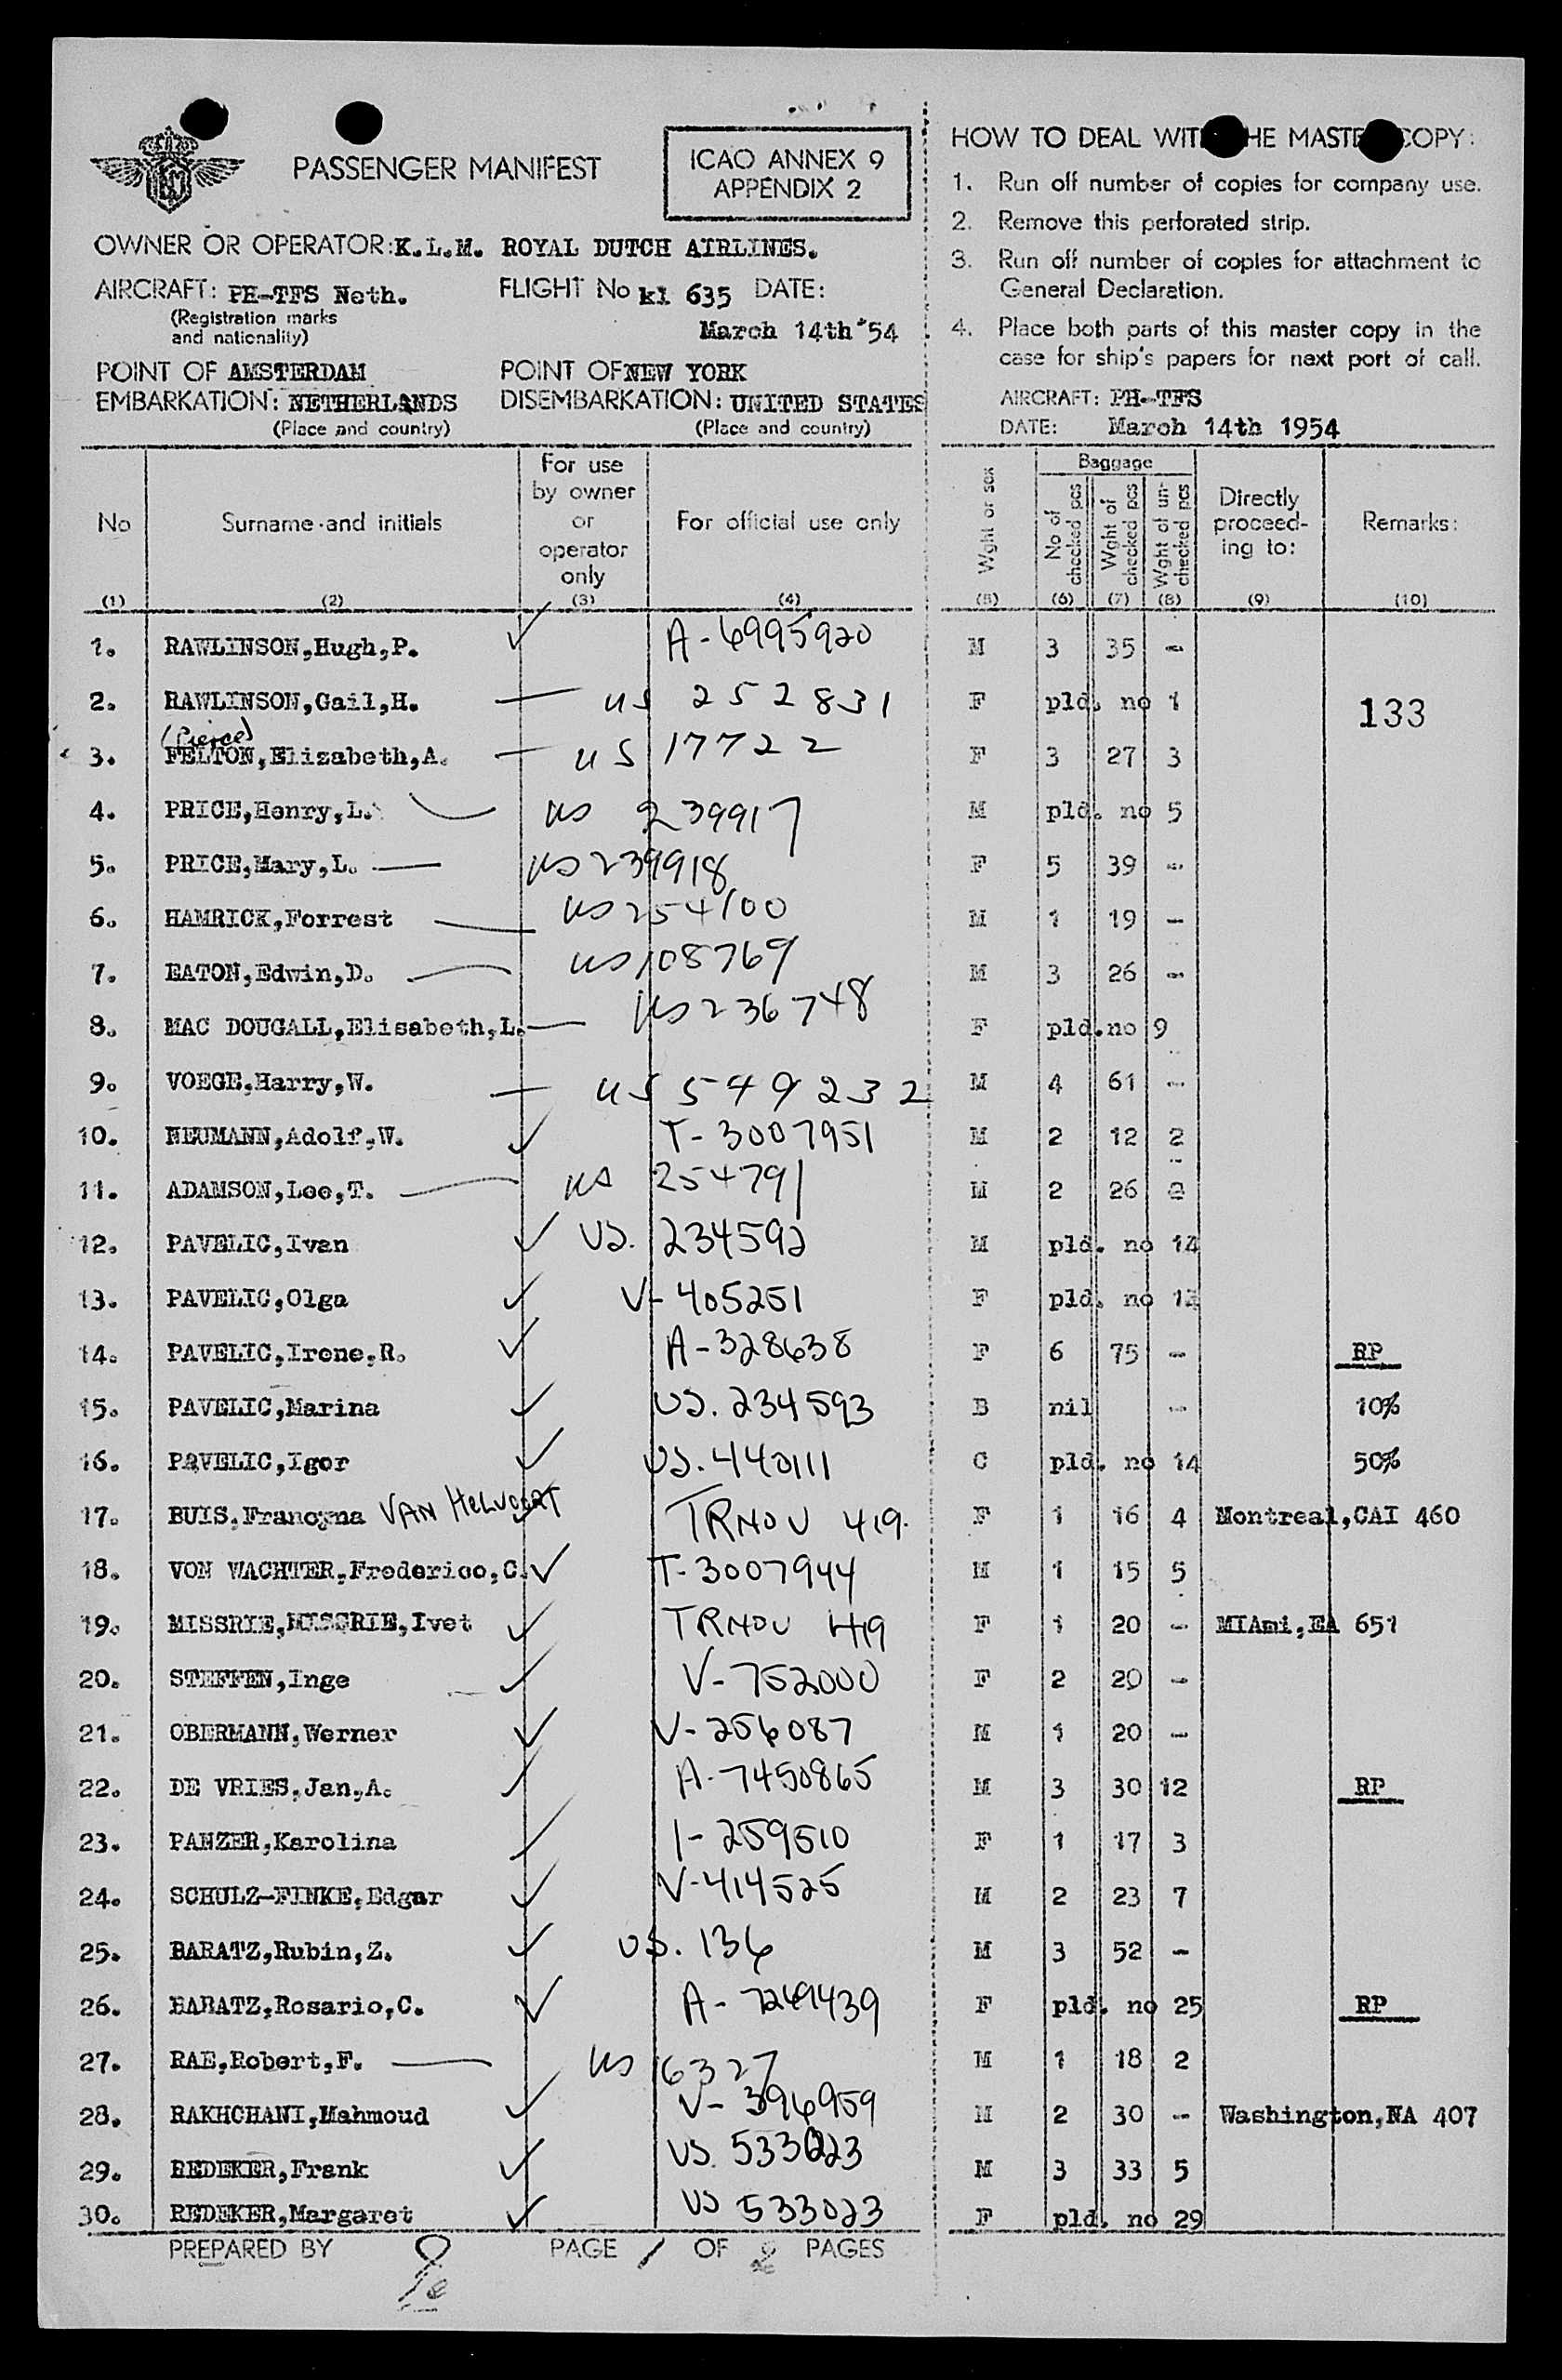 PASSENGER MANIFEST
ICAO ANNEX 9
APPENDIX 2
OWNER OR OPERATOR: K.L.M. ROYAL DUTCH AIRLINES.
AIRCRAFT: PH-TFS Neth. FLIGHT No kl 635 DATE:
(Registration marks
and nationality)
March 14th '54
POINT OF AMSTERDAM POINT OF NEW YORK
EMBARKATION: NETHERLANDS DISEMBARKATION: UNITED STATES
(Place and country) (Place and country)
HOW TO DEAL WITH THE MASTER COPY:
1. Run off number of copies for company use.
2. Remove this perforated strip.
3. Run off number of copies for attachment to
General Declaration.
4. Place both parts of this master copy in the
case for ship's papers for next port of call.
AIRCRAFT: PH-TFS
DATE: March 14th 1954
No Surname and initials For use by owner or operator only For official use only Wght or sex Baggage No of checked pcs Wght of checked pcs Wght of un-checked pcs Directly proceed-ing to: Remarks:
(1) (2) (3) (4) (5) (6) (7) (8) (9) (10)
1. RAWLINSON,Hugh,P. ✓ A-6995920 M 3 35 -
2. RAWLINSON,Gail,H. — US 252831 F pld. no 1
133
(Pierce)
3. FELTON,Elizabeth,A. — US 17722 F 3 27 3
4. PRICE,Henry,L. US 239917 M pld. no 5
5. PRICE,Mary,L. — US 239918 F 5 39 -
6. HAMRICK,Forrest — US 254100 M 1 19 -
7. EATON,Edwin,D. — US 108769 M 3 26 -
8. MAC DOUGALL,Elisabeth,L. — US 236748 F pld.no 9
9. VOEGE,Harry,W. — US 549232 M 4 61 -
10. NEUMANN,Adolf,W. ✓ T-3007951 M 2 12 2
11. ADAMSON,Lee,T. — US 254791 M 2 26 2
12. PAVELIC,Ivan ✓ US. 234592 M pld. no 14
13. PAVELIC,Olga ✓ V-405251 F pld. no
14. PAVELIC,Irene,R. ✓ A-328638 F 6 75 - RP
15. PAVELIC,Marina ✓ US. 234593 B nil - 10%
16. PAVELIC,Igor ✓ US. 440111 C pld. no 14 50%
17. BUIS,Francyna VAN HELVOORT ✓ TRNOV 419. F 1 16 4 Montreal,CAI 460
18. VON WACHTER,Frederico,C. ✓ T-3007944 M 1 15 5
19. MISSRIE,MISSRIE,Ivet ✓ TRNOV 419 F 1 20 - MIAmi,EA 651
20. STEFFEN,Inge ✓ V-752000 F 2 20 -
21. OBERMANN,Werner ✓ V-256087 M 1 20 -
22. DE VRIES,Jan,A. ✓ A-7450865 M 3 30 12 RP
23. PANZER,Karolina ✓ I-259510 F 1 17 3
24. SCHULZ-FINKE,Edgar ✓ V-414525 M 2 23 7
25. BARATZ,Rubin,Z. ✓ US. 136 M 3 52 -
26. BARATZ,Rosario,C. ✓ A-7249439 F pld. no 25 RP
27. RAE,Robert,F. — US 16327 M 1 18 2
28. RAKHCHANI,Mahmoud ✓ V-396959 M 2 30 - Washington,NA 407
29. REDEKER,Frank ✓ US. 533023 M 3 33 5
30. REDEKER,Margaret ✓ US 533023 F pld. no 29
PREPARED BY PAGE 1 OF 2 PAGES